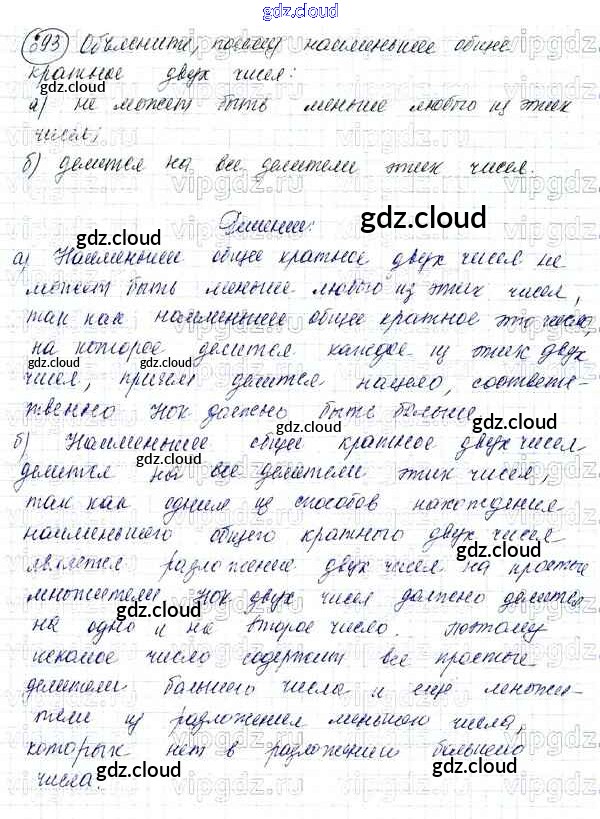 gdz.cloud
693 Объясните, почему наименьшее общее
кратное двух чисел:
а) не может быть меньше любого из этих
чисел;
б) делится на все делители этих чисел.
Решение:
gdz.cloud
gdz.cloud
а) Наименьшее общее кратное двух чисел не
может быть меньше любого из этих чисел,
так как наименьшее общее кратное это число,
на которое делится каждое из этих двух
gdz.cloud
gdz.cloud
чисел, причем делится нацело, соответс-
твенно НОК должно быть больше.
gdz.cloud
б) Наименьшее общее кратное двух чисел
gdz.cloud
делится на все делители этих чисел,
так как одним из способов нахождения
наименьшего общего кратного двух чисел
gdz.cloud
является разложение двух чисел на простые
множители. НОК двух чисел должно делится
gdz.cloud
gdz.cloud
на одно и на второе число. Поэтому
искомое число содержит все простые
gdz.cloud
делители большего числа и ещё множи-
тели из разложения меньшего числа,
gdz.cloud
которых нет в разложении большего
gdz.cloud
числа.
gdz.cloud